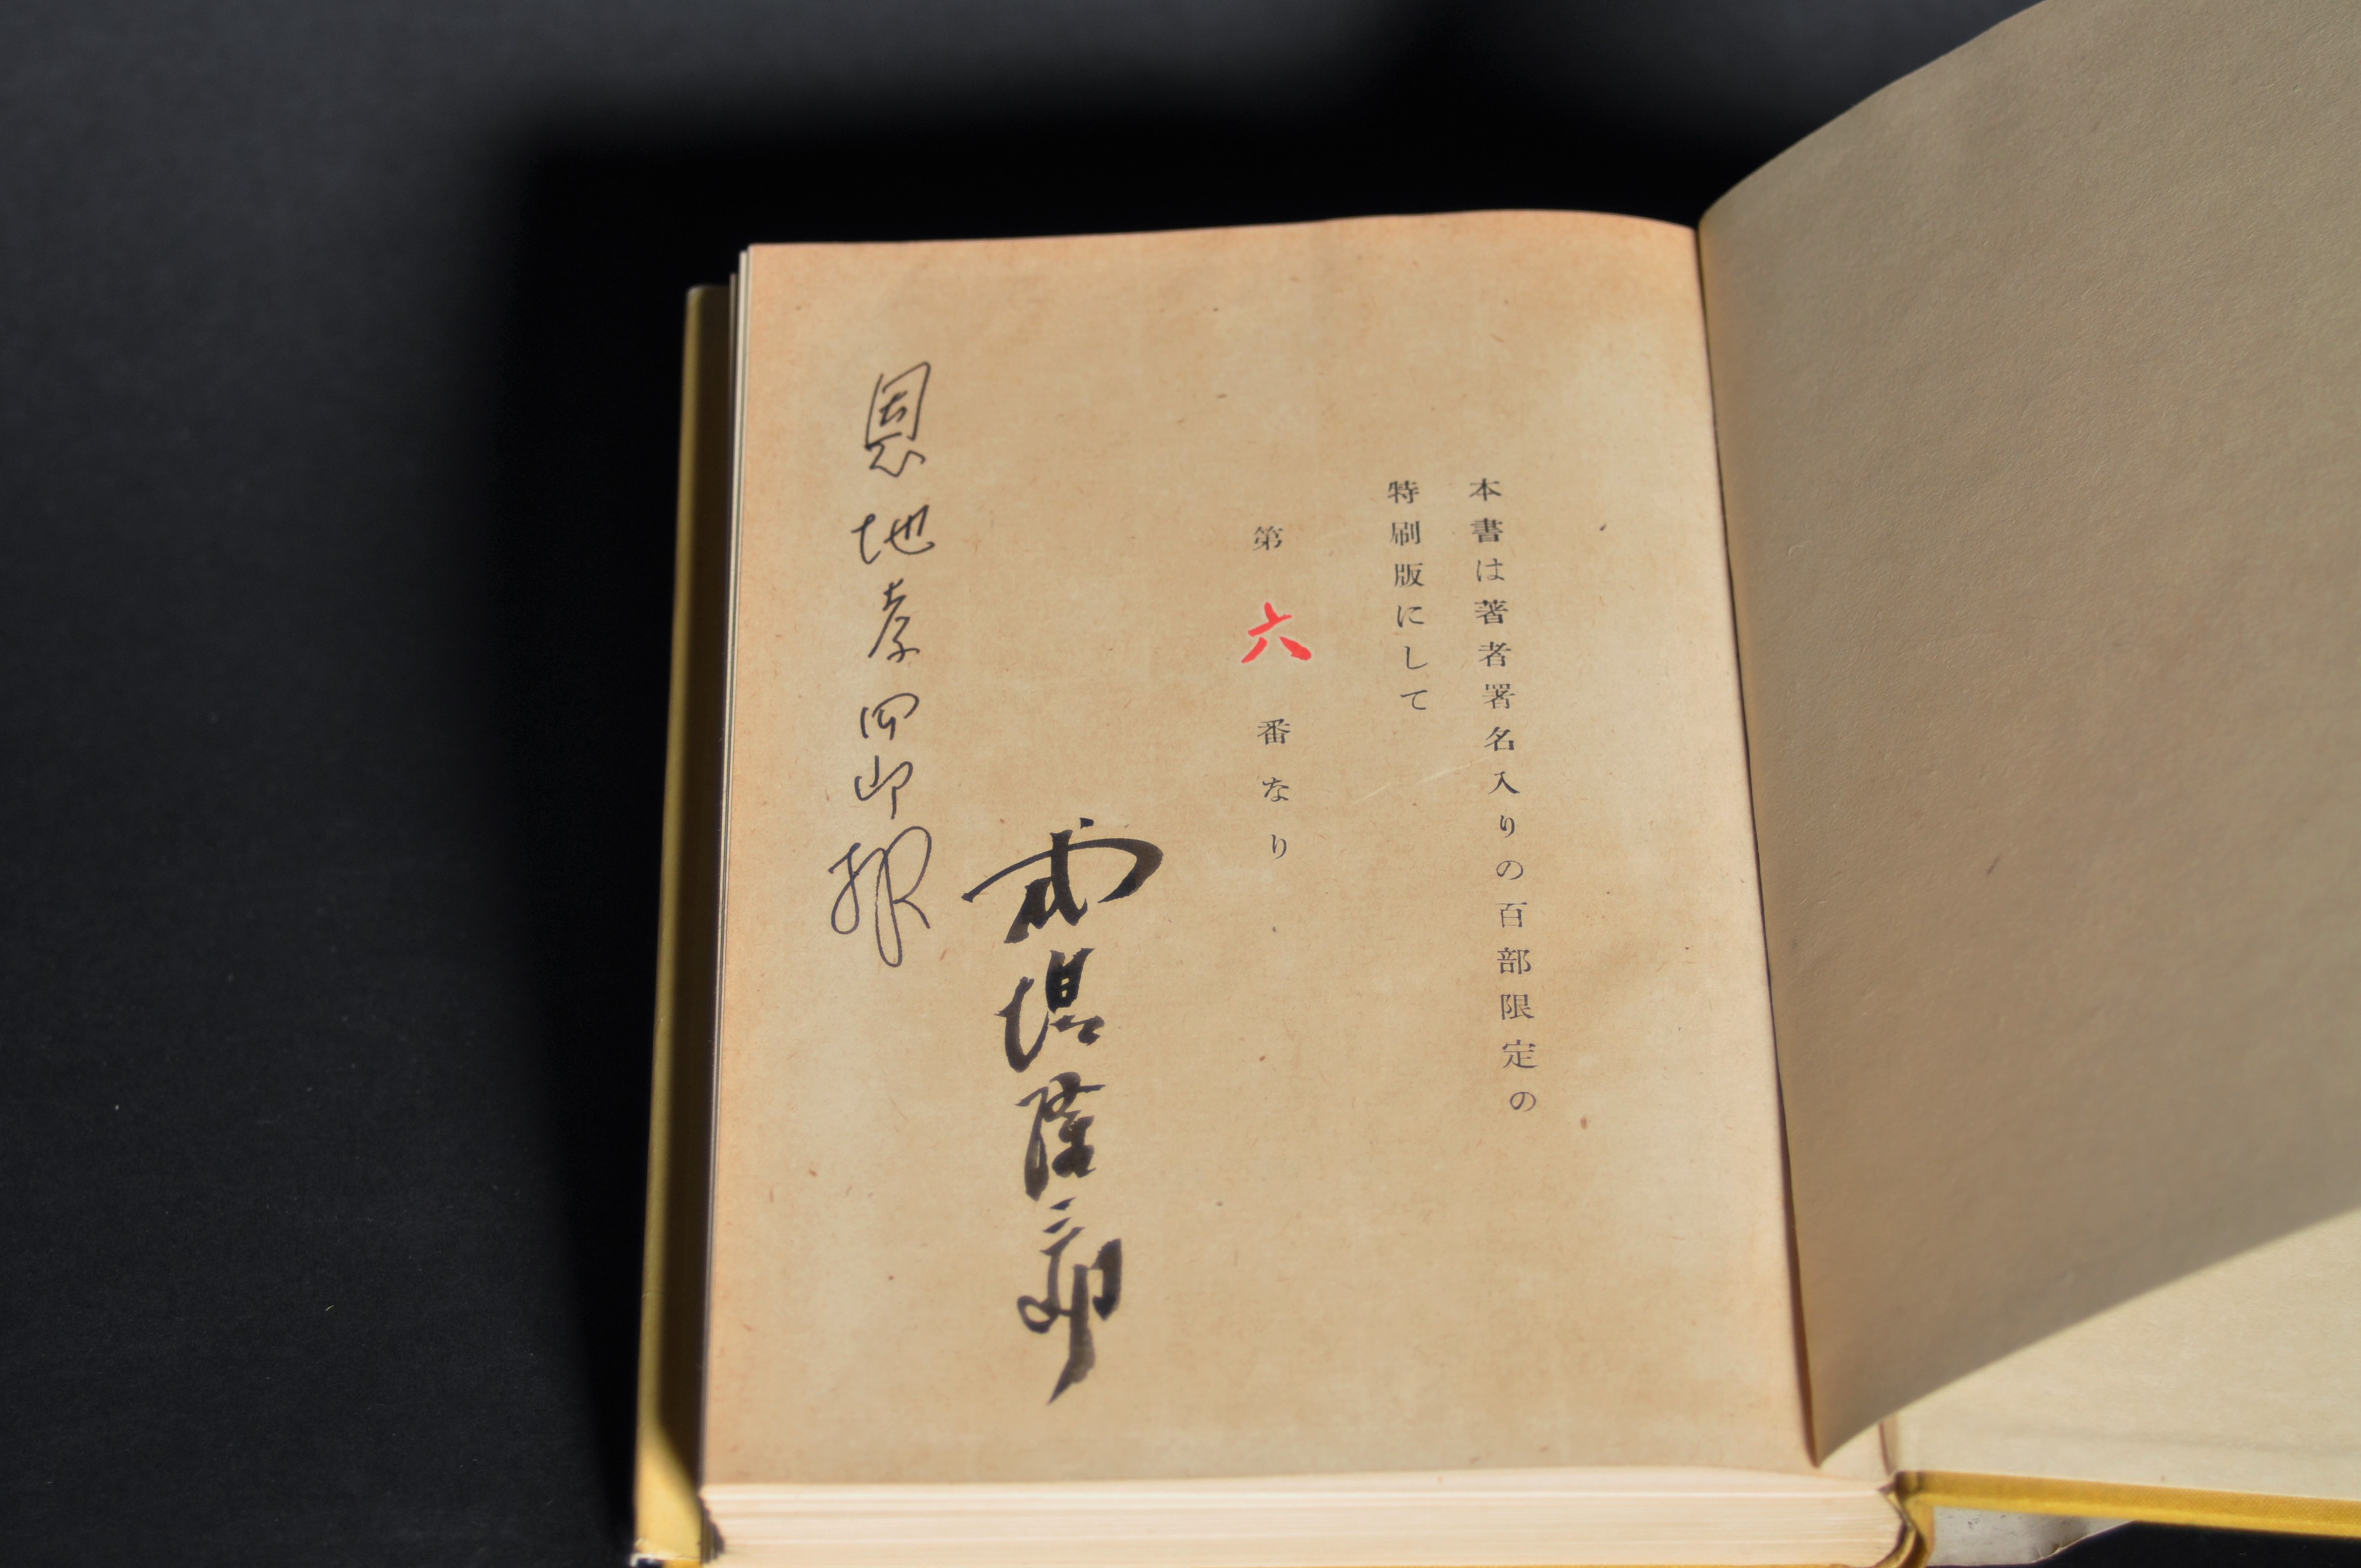 本書は著者署名入りの百部限定の
特刷版にして
第六番なり
式場隆三郎
恩地孝四郎